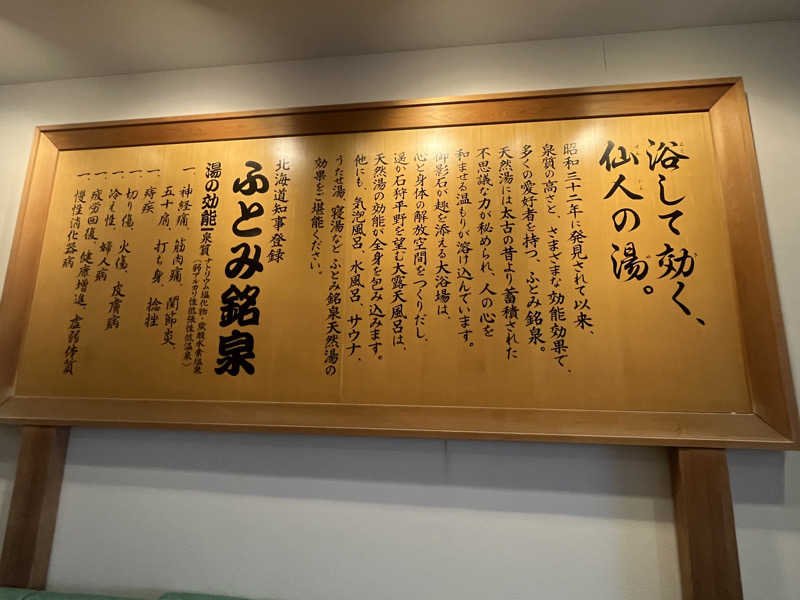 浴して効く、
仙人の湯。
昭和三十二年に発見されて以来、
泉質の高さと、さまざまな効能効果で、
多くの愛好者を持つ、ふとみ銘泉。
天然湯には太古の昔より蓄積された
不思議な力が秘められ、人の心を
和ませる温もりが溶け込んでいます。
御影石が趣を添える大浴場は、
心と身体の解放空間をつくりだし、
遥か石狩平野を望む大露天風呂は、
天然湯の効能が全身を包み込みます。
他にも、気泡風呂、水風呂、サウナ、
うたせ湯、寝湯など、ふとみ銘泉天然湯の
効果をご堪能ください。
北海道知事登録
ふとみ銘泉
湯の効能
泉質 ナトリウム塩化物・炭酸水素塩泉
(弱アルカリ性低張性低温泉)
一、神経痛、筋肉痛、関節炎、
五十肩、打ち身、捻挫
一、痔疾
一、切り傷、火傷、皮膚病
一、冷え性、婦人病
一、疲労回復、健康増進、虚弱体質
一、慢性消化器病